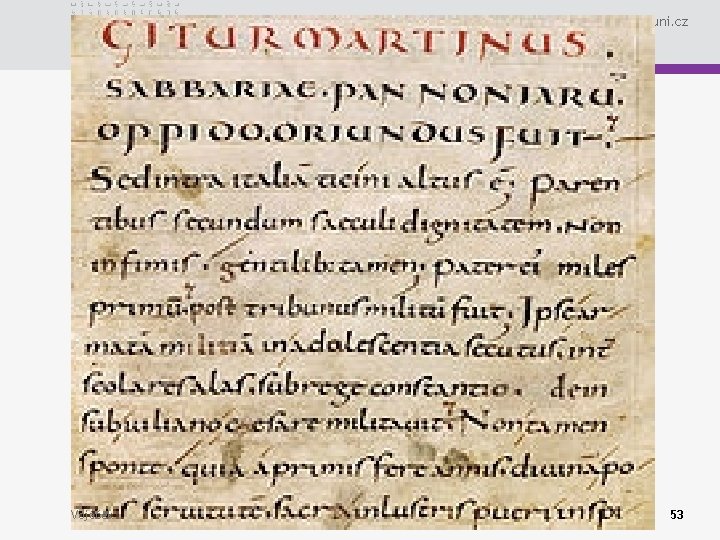 uni.cz
GITUR MARTINUS.
SABBARIAE. PAN NONIARU.
OPPIDO. ORIUNDUS FUIT.
Sed intra italiā ticini altus ē. Paren
tibus secundum saeculi dignitatem. Non
infimis. gentilib: tamen. Pater ei miles
primū. post tribunus militū fuit. Ipse ar
matā militiā in adolescentia secutus. int
scolares alas. sub rege constantio. dein
sub iuliano cęsare militavit. Non tamen
sponte. quia á primis fere annis divinā po
tius servitutē. sacra inlustris pueri inspi
53